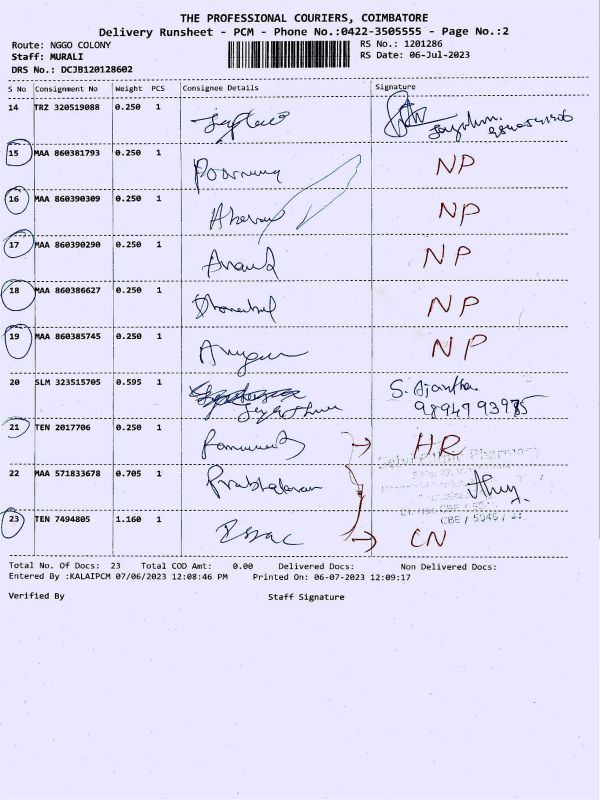 THE PROFESSIONAL COURIERS, COIMBATORE
Delivery Runsheet - PCM - Phone No.:0422-3505555 - Page No.:2
Route: NGGO COLONY RS No.: 1201286
Staff: MURALI RS Date: 06-Jul-2023
DRS No.: DCJB120128602
S No Consignment No Weight PCS Consignee Details Signature
14 TRZ 320519088 0.250 1
15 MAA 860381793 0.250 1 Poornima NP
16 MAA 860390309 0.250 1 NP
17 MAA 860390290 0.250 1 Anand NP
18 MAA 860386627 0.250 1 NP
19 MAA 860385745 0.250 1 NP
20 SLM 323515705 0.595 1 S. Ajantha
9894793985
21 TEN 2017706 0.250 1 → HR
22 MAA 571833678 0.705 1 Prabhakaran
CBE
23 TEN 7494805 1.160 1 Issac → CN
Total No. Of Docs: 23 Total COD Amt: 0.00 Delivered Docs: Non Delivered Docs:
Entered By :KALAIPCM 07/06/2023 12:08:46 PM Printed On: 06-07-2023 12:09:17
Verified By Staff Signature